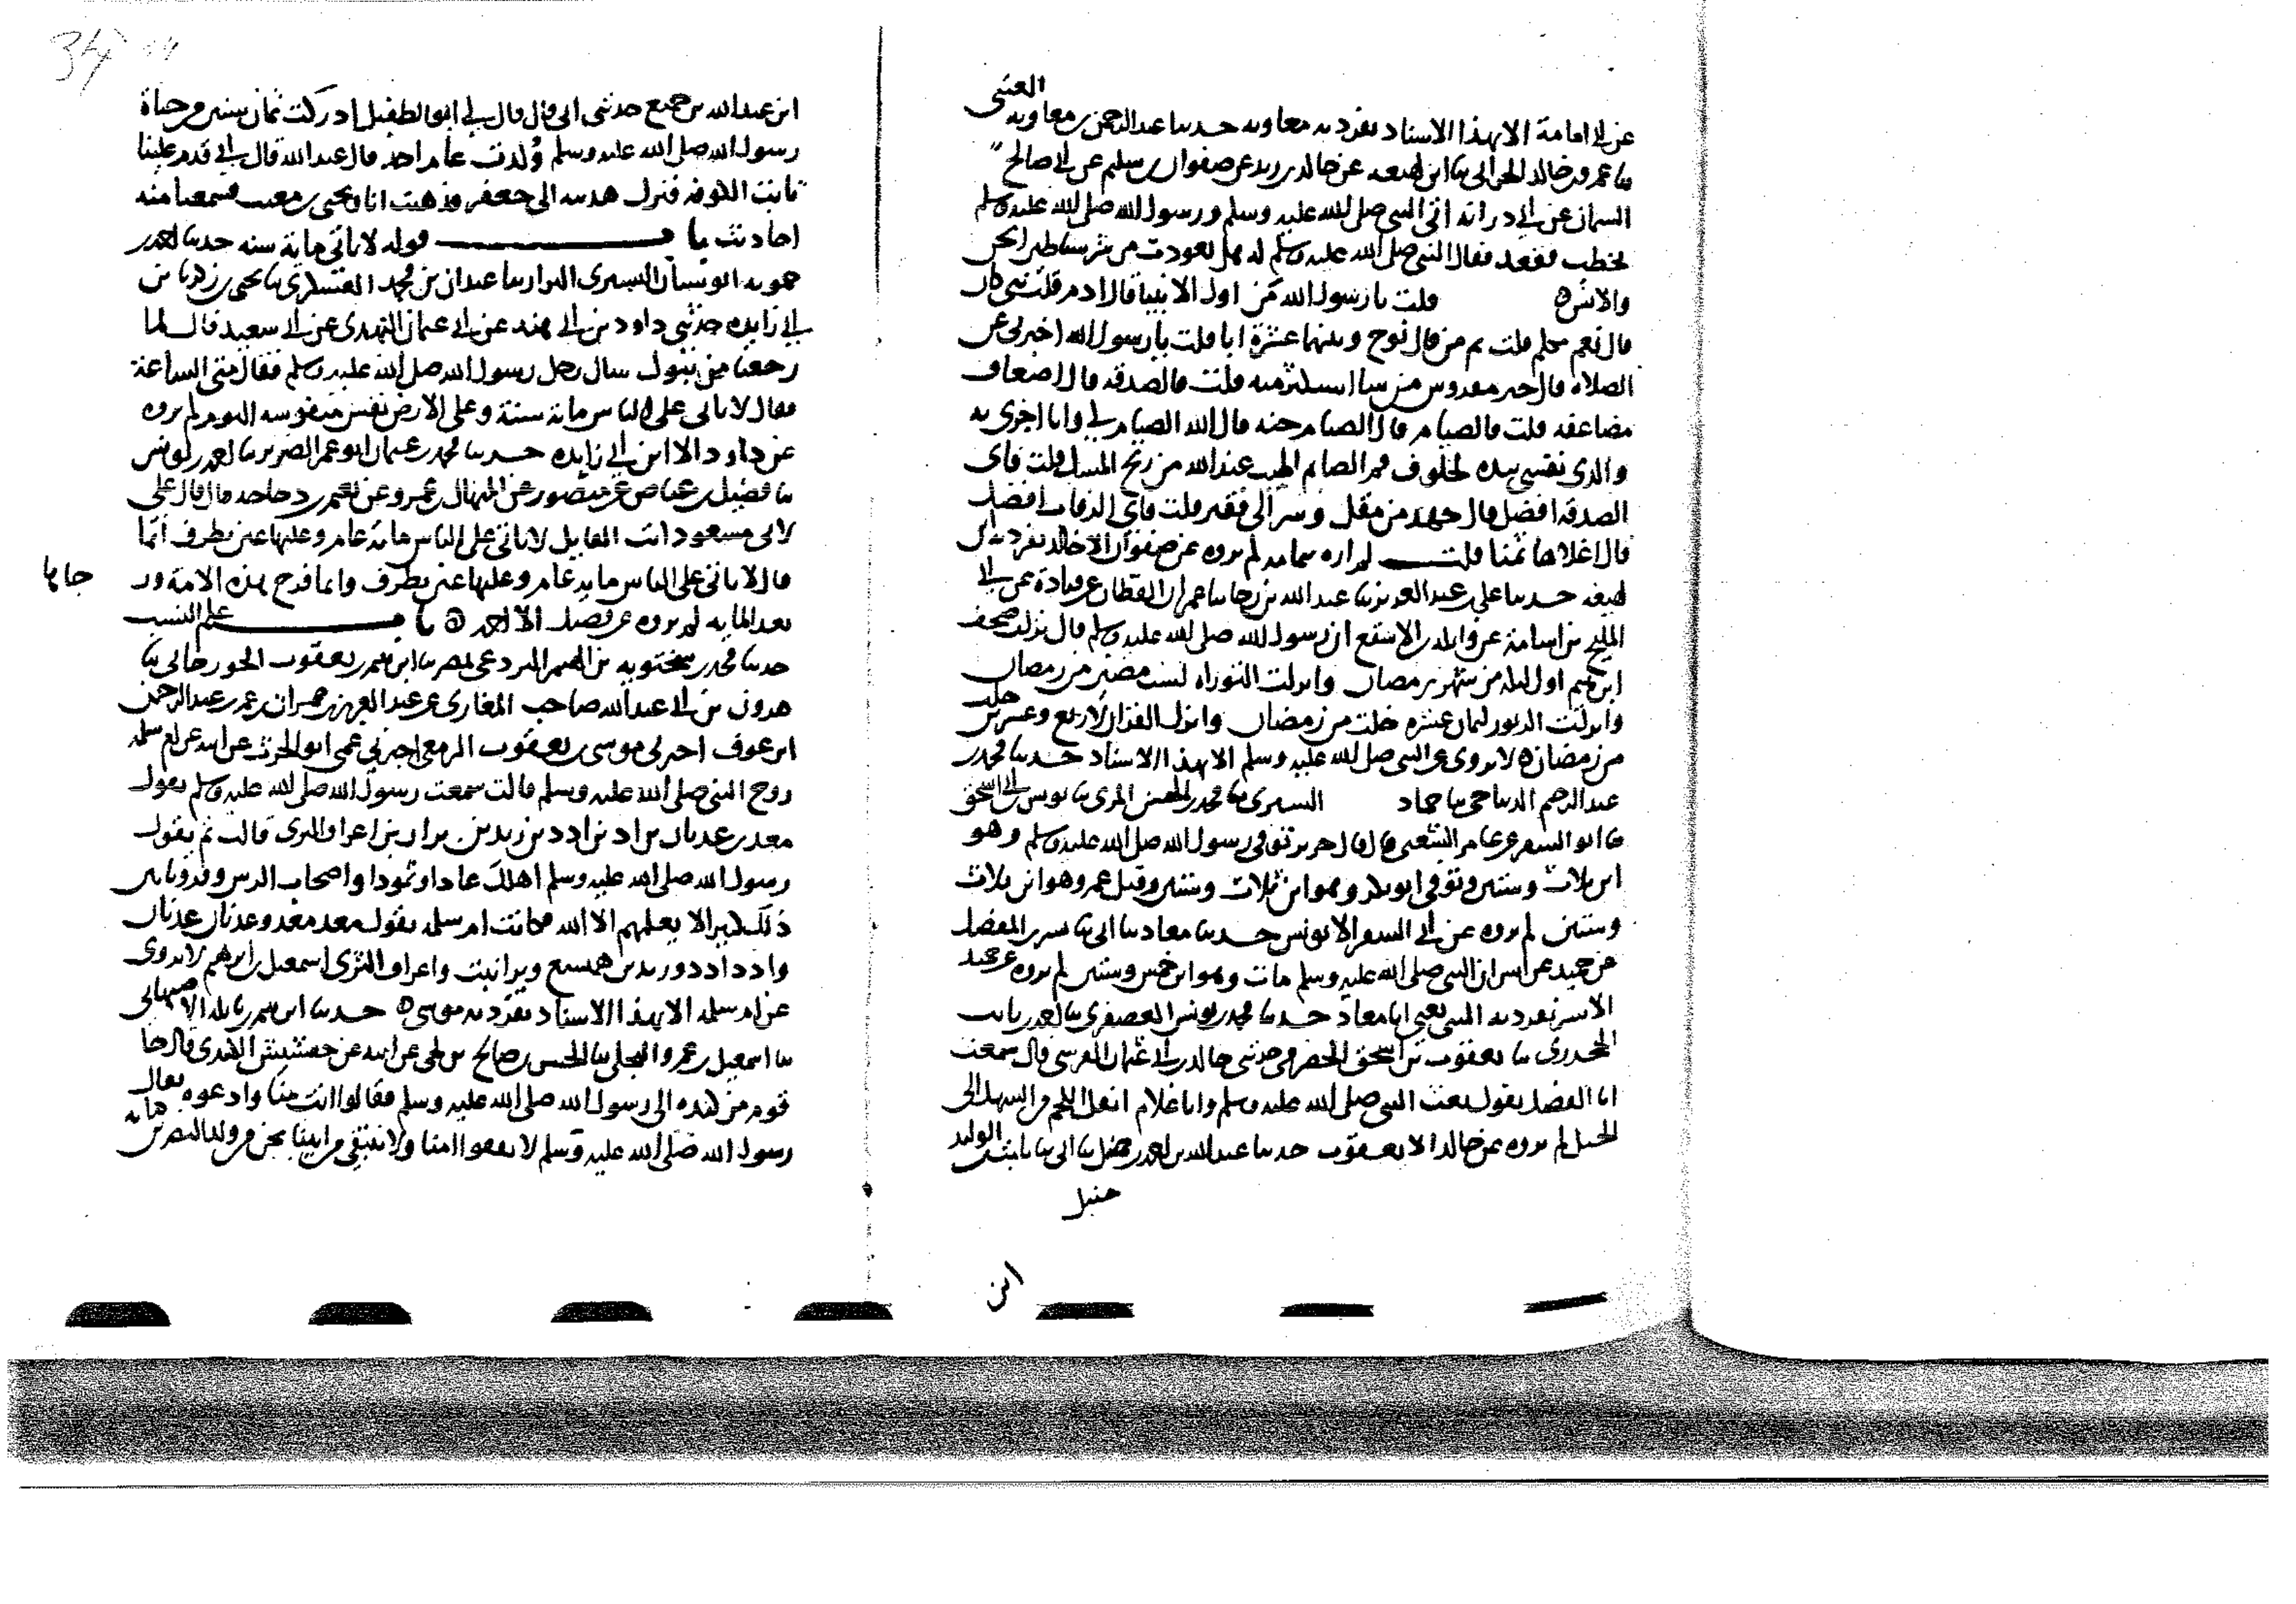 عن ابي امامة الا بهذا الاسناد تفرد به معاوية حدثنا عبد الرحمن بن معاوية العتبي
ثنا عمرو بن خالد الحراني ثنا ابن لهيعه عن خالد بن يزيد عن صفوان بن سليم عن ابي صالح
السمان عن ابي ذر انه اتى النبي صلى الله عليه وسلم ورسول الله صلى الله عليه وسلم
يخطب فقعد فقال النبي صلى الله عليه وسلم له هل تعوذت من شر شياطين الجن
والانس قلت يا رسول الله من اول الانبيا قال ادم قلت نبي كان
قال نعم مكلم قلت ثم من قال نوح وبينهما عشرة ابا قلت يا رسول الله اخبرني عن
الصلاة قال خير من شا استكثر منه قلت فالصدقه قال اضعاف
مضاعفه قلت فالصيام قال الصيام جنه قال الله الصيام لي وانا اجزي به
والذي نفسي بيده لخلوف فم الصايم اطيب عند الله من ريح المسك قلت فاي
الصدقة افضل قال جهد من مقل وسر الى فقير قلت فاي الرقاب افضل
قال اغلاها ثمنا قلت لم يروه عن صفوان الا خالد تفرد به ابن
لهيعه حدثنا علي بن عبد العزيز ثنا عبد الله بن رجا ثنا عمران القطان عن قتادة عن ابي
المليح بن اسامة عن واثلة بن الاسقع ان رسول الله صلى الله عليه وسلم قال نزلت صحف
ابرهيم اول ليله من شهر رمضان وانزلت التوراه لست مضين من رمضان
وانزلت الزبور لثمان عشره خلت من رمضان وانزل القران لاربع وعشرين خلت
من رمضان لا يروى عن النبي صلى الله عليه وسلم الا بهذا الاسناد حدثنا محمد بن
عبد الرحيم الديباجي ثنا حماد التستري ثنا محمد بن الحسن المزني ثنا يونس بن ابي اسحق
ثنا ابو السفر عن عامر الشعبي قال قال جرير توفي رسول الله صلى الله عليه وسلم وهو
ابن ثلاث وستين وتوفي ابو بكر وهو ابن ثلاث وستين وقتل عمر وهو ابن ثلاث
وستين لم يروه عن ابي السفر الا يونس حدثنا معاذ ثنا ابي ثنا بشر بن المفضل
عن حميد عن انس ان النبي صلى الله عليه وسلم مات وهو ابن خمس وستين لم يروه عن حميد
الا بشر تفرد به المثنى يعني ابا معاذ حدثنا محمد بن يونس العصفري ثنا احمد بن ثابت
الجحدري ثنا يعقوب بن اسحق الحضرمي حدثني خالد بن ابي عثمان القرشي قال سمعت
ابا الفضل يقول بعث النبي صلى الله عليه وسلم وانا غلام انقل اللحم من السهل الى
الجبل لم يروه عن خالد الا يعقوب حدثنا عبد الله بن احمد بن حنبل ثنا ابي ثنا ثابت بن الوليد
حنبل
ابن
ابن عبد الله بن جميع حدثني ابي قال قال لي ابو الطفيل ادركت ثمان سنين من حياة
رسول الله صلى الله عليه وسلم وولدت عام احد قال عبد الله قال ابي قدم علينا
ثابت الكوفه فنزل مدينه ابي جعفر فذهبت انا ويحيى بن معين فسمعنا منه
احاديث باب قوله لا ياتي مايه سنه حدثنا احمد بن
حمويه ابو سيار التستري البزار ثنا عبدان بن محمد العسكري ثنا يحيى بن زكريا بن
ابي زايده حدثني داود بن ابي هند عن ابي عثمان النهدي عن ابي سعيد قال لما
رجعنا من تبوك سال رجل رسول الله صلى الله عليه وسلم فقال متى الساعة
فقال لا ياتي على الناس ماية سنة وعلى الارض نفس منفوسه اليوم لم يروه
عن داود الا ابن ابي زايده حدثنا محمد بن عثمان ابو عمر الضرير ثنا احمد بن يونس
ثنا فضيل بن عياض عن منصور عن المنهال بن عمرو عن نعيم بن دجاجه قال قال علي
لابي مسعود انت القايل لا ياتي على الناس ماية عام وعليها عين تطرف انما
قال لا ياتي على الناس مايه عام وعليها عين تطرف وانما فرح هذه الامة ور
جاها
بعد المايه لم يروه عن فضيل الا احمد باب علم النسب
حدثنا محمد بن سختويه بن الهيثم البردعي بمصر ثنا ابرهيم بن يعقوب الجوزجاني ثنا
هرون بن ابي عبد الله صاحب المغازي عن عبد العزيز بن عمران بن عمر بن عبد الرحمن
ابن عوف اخبرني موسى بن يعقوب الزمعي اخبرني عمي ابو الحرث عن ابيه عن ام سلمه
زوج النبي صلى الله عليه وسلم قالت سمعت رسول الله صلى الله عليه وسلم يقول
معد بن عدنان بن اد بن ادد بن زيد بن برا بن اعراق الثرى قالت ثم يقول
رسول الله صلى الله عليه وسلم اهلك عادا وثمودا واصحاب الرس وقرونا بين
ذلك كثيرا لا يعلمهم الا الله فكانت ام سلمه تقول معد معد وعدنان عدنان
وادد ادد وزيد بن هميسع وبرا نبت واعراق الثرى اسمعيل بن ابرهيم لا يروى
عن ام سلمه الا بهذا الاسناد تفرد به موسى حدثنا ابرهيم بن نايله الاصبهاني
ثنا اسمعيل بن عمرو البجلي ثنا الحسن بن صالح عن ابيه عن جفشيش الكندي قال جا
قوم من كنده الى رسول الله صلى الله عليه وسلم فقالوا انت منا وادعوه فقال
رسول الله صلى الله عليه وسلم لا نقفوا امنا ولا ننتفي من ابينا نحن من ولد النضر بن كنانه